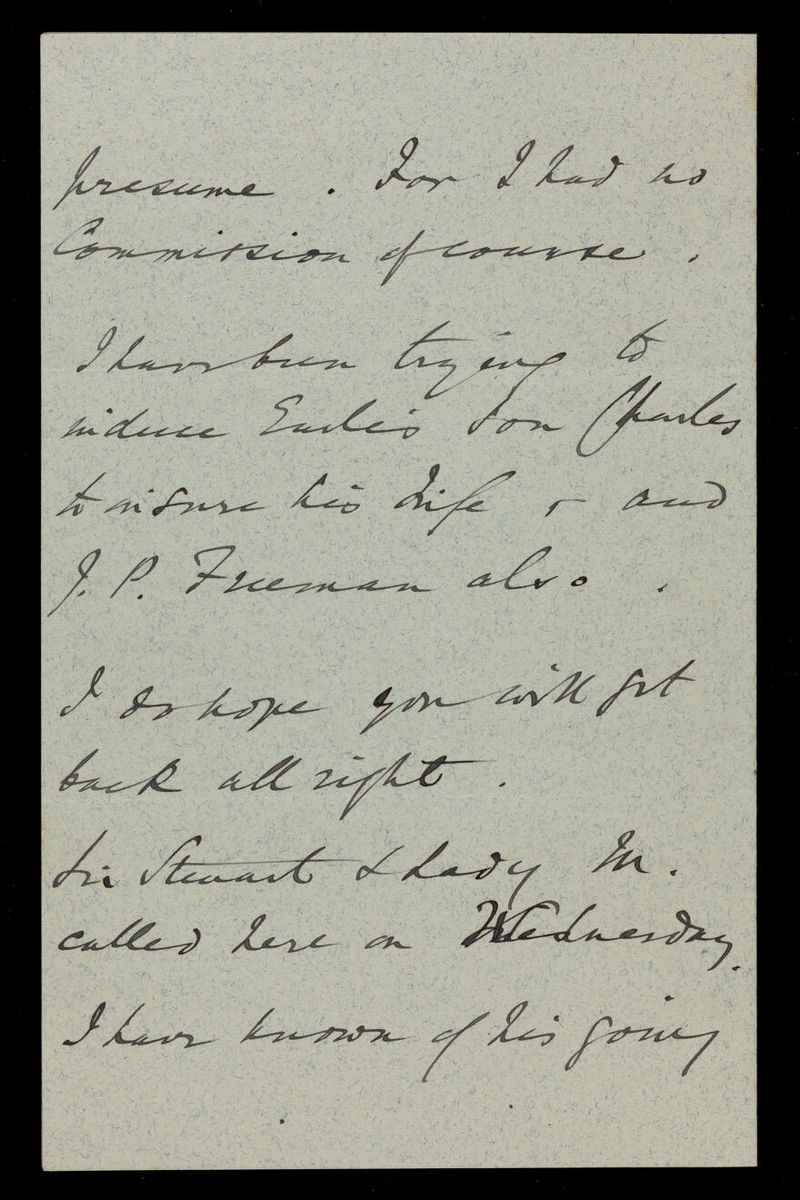 presume . For I had no
Commission of course .
I have been trying to
induce Earle's son Charles
to insure his Life & and
J. P. Freeman also .
I do hope you will get
back all right .
Sir Stewart & Lady M .
called here on Wednesday .
I have known of his going